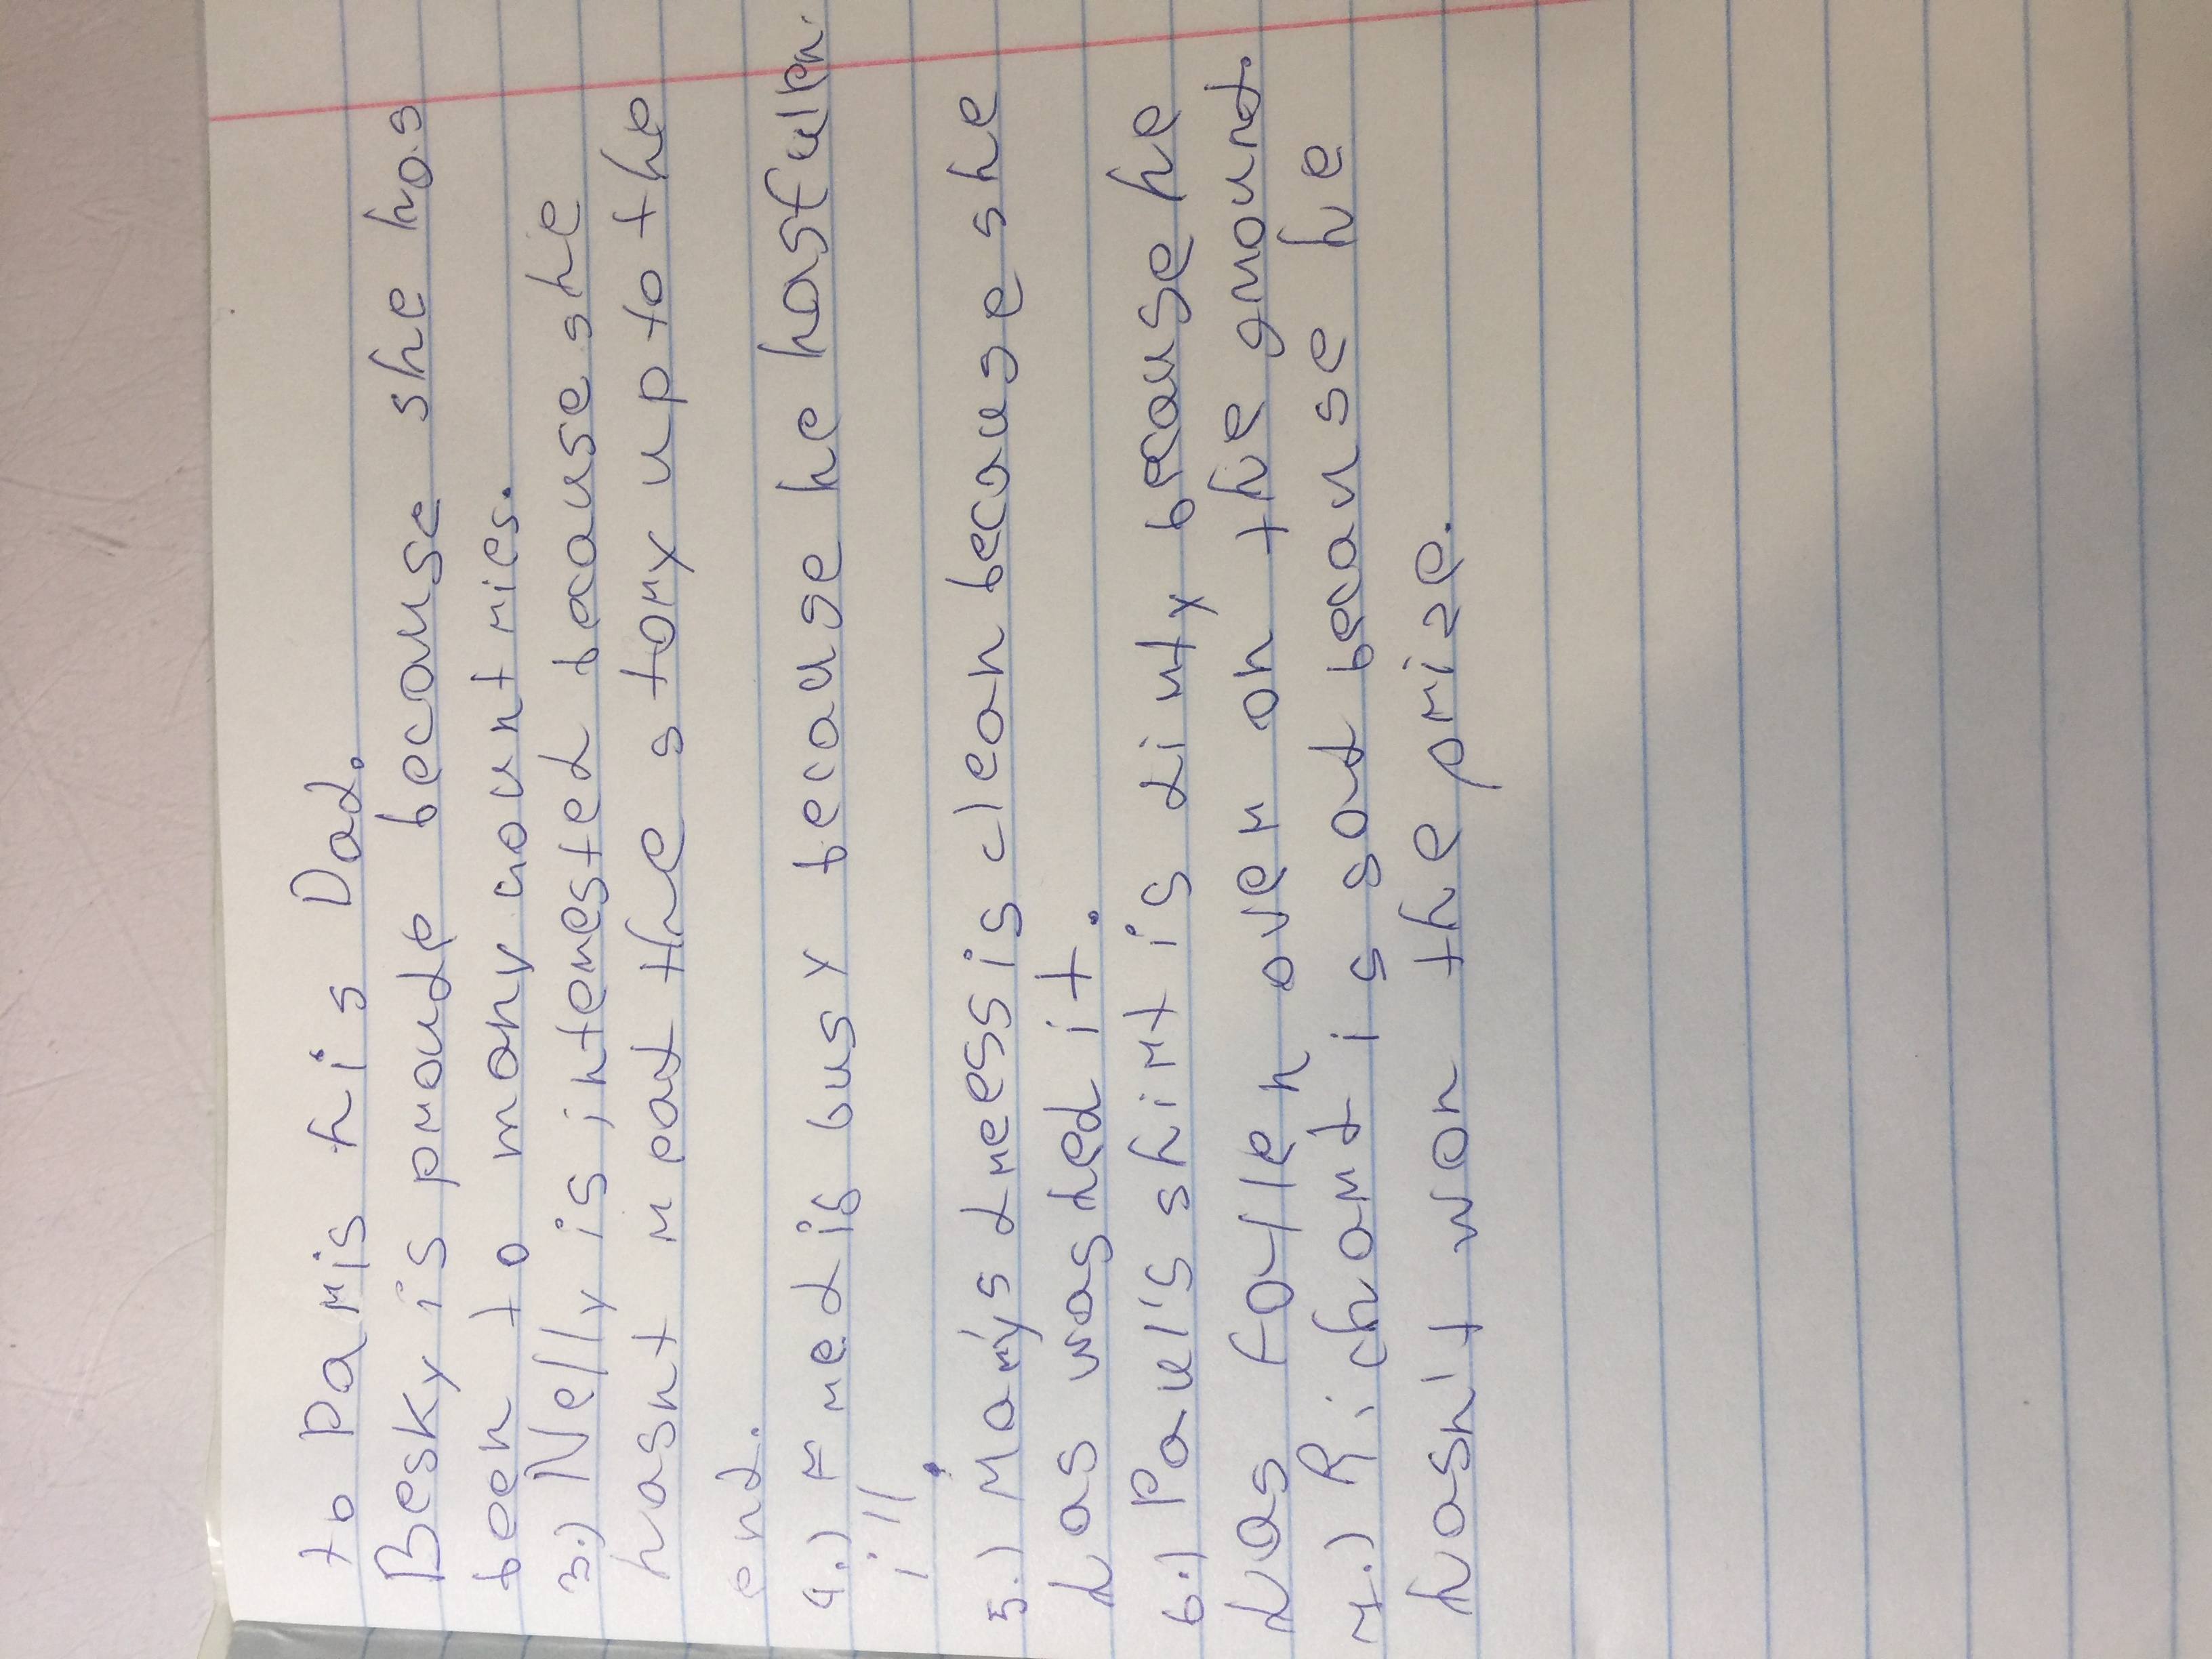 to Paris his Dad.
Besky is proude because she has
been to many countries.
3.) Nelly is interested because she
hasnt read the story up to the
end.
4.) Fred is busy because he hasfullen
ill.
5.) Mary's dress is clean because she
has washed it.
6.) Paul's shirt is dirty because he
has faullen over on the ground.
7.) Richard is sad because he
hasn't won the prize.